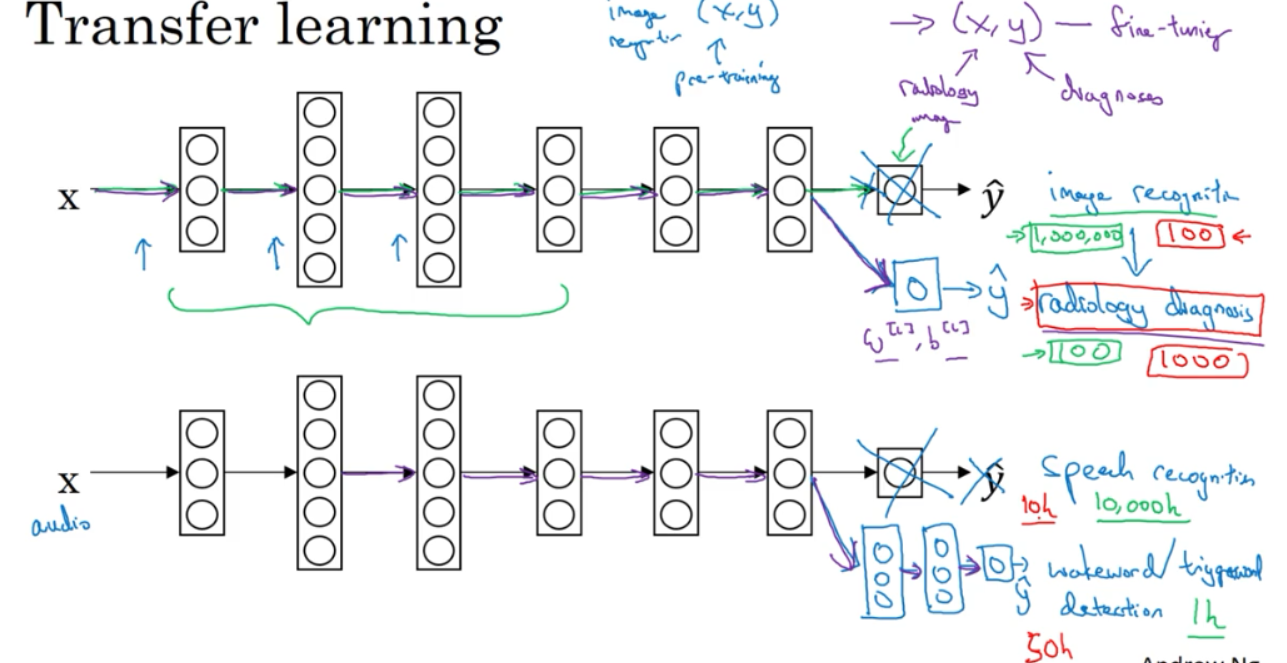 Transfer learning
image (x,y)
pre-training
→ (x,y) — fine-tuning
radiology
diagnoses
x
ŷ
image recognition
→ 1,000,000 100 ←
ŷ
radiology diagnosis
W[L], b[L]
→ 100 1000
x
audio
ŷ
speech recognition
10h 10,000h
ŷ
wakeword/triggerword
detection 1h
50h